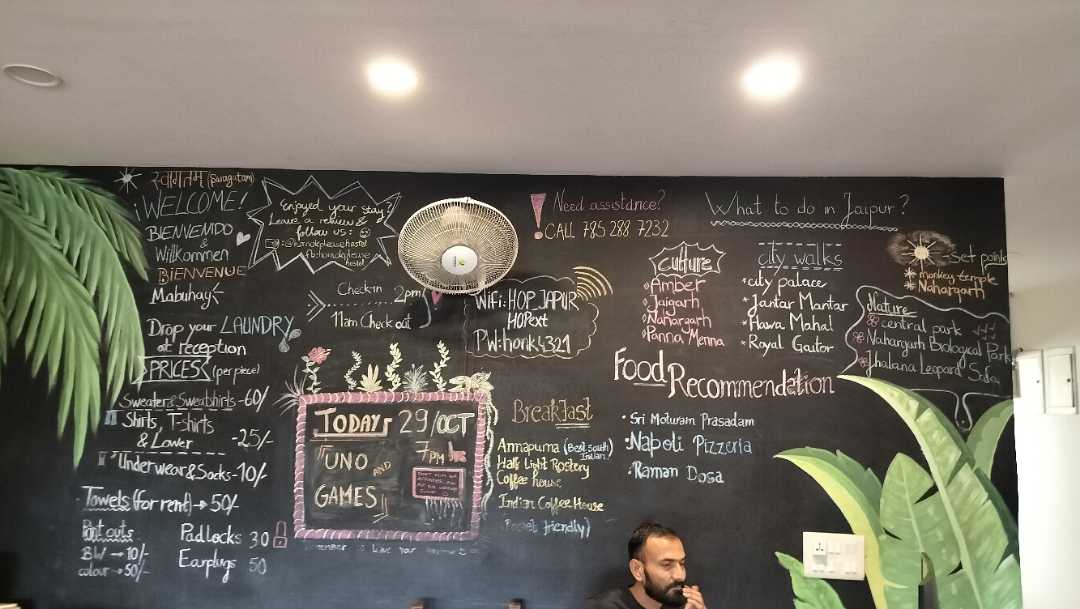 स्वागतम (Swagatam)
¡WELCOME!
BIENVENIDO
&
Willkommen
BIENVENUE
Mabuhay
Enjoyed your stay?
Leave a review &
follow us:
hostel
Check-in 2pm
11am Check out
WiFi: HOP JAIPUR
HOPext
PW: honk4321
Need assistance?
CALL 785 288 7232
What to do in Jaipur?
culture
Amber
Jaigarh
Nahargarh
Panna Menna
city walks
city palace
Jantar Mantar
Hawa Mahal
Royal Gaitor
monkey temple
Nahargarh
Nature
central park
Nahargarh Biological Park
Jhalana Leopard
Drop your LAUNDRY
at reception
PRICES (per piece)
Sweaters & Sweatshirts - 60/-
Shirts, T-shirts
& Lower - 25/-
Underwear & Socks - 10/-
Towels (for rent) → 50/-
Print outs
BW → 10/-
colour → 50/-
Padlocks 30
Earplugs 50
TODAY 29/OCT
7PM
UNO AND
GAMES
Breakfast
Annapurna (Best south
Indian)
Half Light Rostery
Coffee house
Indian Coffee House
Food Recommendation
Sri Moturam Prasadam
Napoli Pizzeria
Raman Dosa